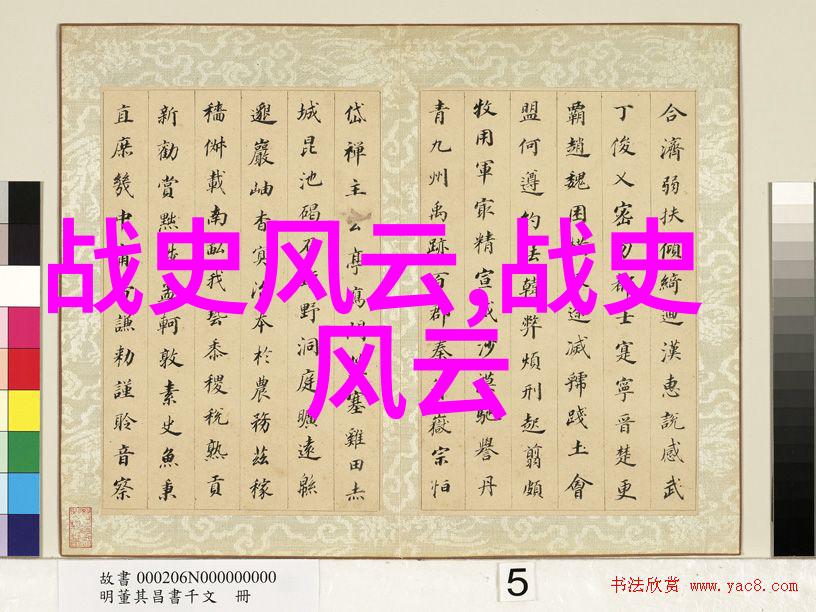 合濟弱扶傾綺迴漢惠說感武
丁俊乂密勿士寔寧晉楚更
霸趙魏困途滅虢踐土會
盟何遵約法韓弊煩刑起翦頗
牧用軍最精宣威沙漠馳譽丹
青九州禹跡百郡秦嶽宗恒
岱禪主云亭塞雞田赤
城昆池碣野洞庭曠遠緜
邈巖岫杳冥治本於農務茲稼
穡俶載南畝我蓺黍稷稅熟貢
新勸賞黜陟孟軻敦素史魚秉
直庶幾中謙勅謹聆音察
战史风云,战史
风云
故書 000206N000000000
明董其昌書千文 冊
5
书法欣赏 www.yac8.com